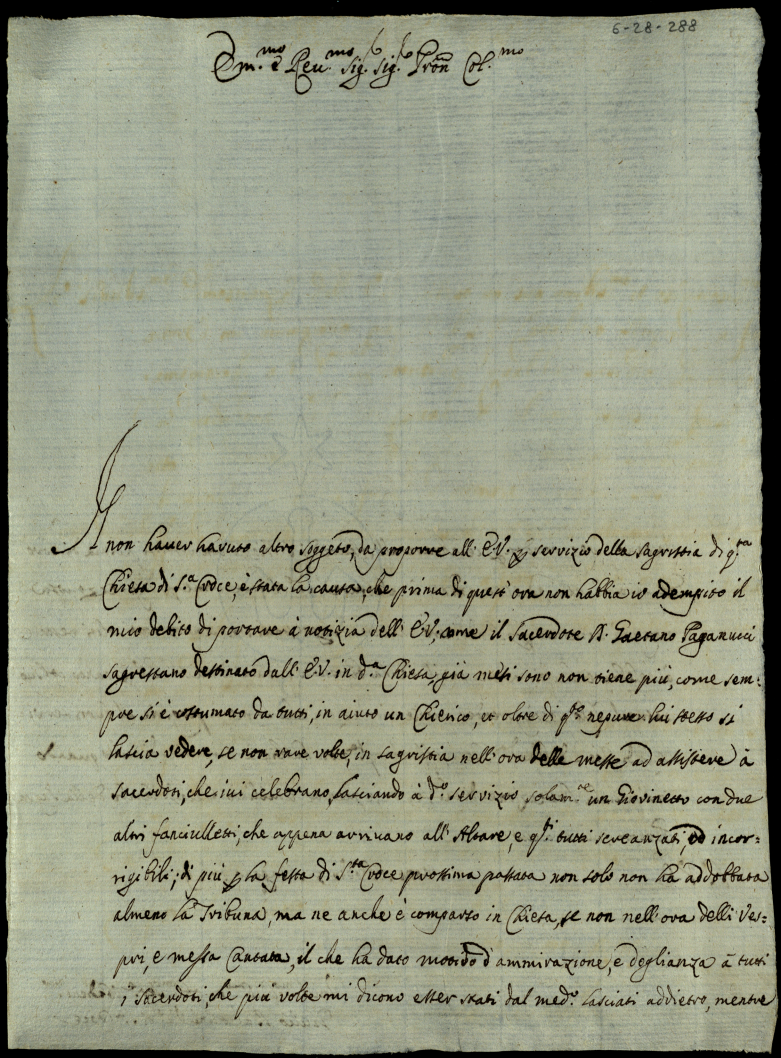 6-28-288
Em.mo e Reu.mo Sig. Sig. Pron Col.mo
Il non hauer hauuto altro soggetto, da proporre all' E.V. p servizio della sagristia di q.ta
Chiesa di S.a Croce, è stata la causa, che prima di quest' ora non habbia io adempito il
mio debito di portare à notizia dell' E.V., come il sacerdote D. Gaetano Paganucci
sagrestano destinato dall' E.V. in d.a Chiesa, già mesi sono non tiene più, come sem-
pre si è costumato da tutti, in aiuto un Chierico, et oltre di q.to nepure lui stesso si
lascia vedere, se non rare volte, in sagristia nell' ora delle messe ad assistere à
sacerdoti, che iui celebrano, lasciando à d.o servizio solam.te un Giovinetto con due
altri fanciulletti, che appena arrivano all' Altare, e q.ti tutti screanzati, ed incor-
rigibili; di più p la festa di S.ta Croce prossima passata non solo non ha addobbata
almeno la Tribuna, ma ne anche è comparso in Chiesa, se non nell' ora delli Ves-
pri, e messa Cantata, il che ha dato motivo d' ammirazione, e deglianza à tutti
i sacerdoti, che più volte mi dicono esser stati dal med.o lasciati addietro, mentre